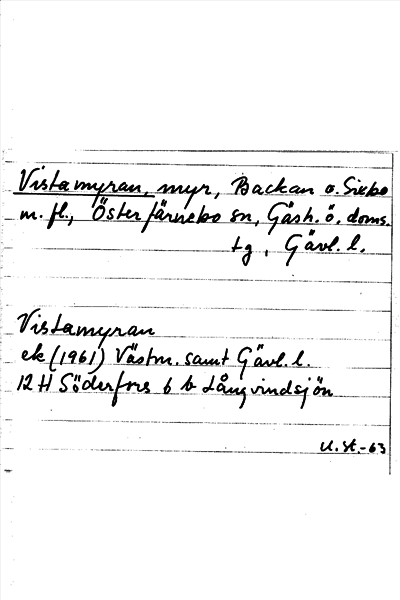 Vistamyran, myr, Backan o. Sickbo
m. fl., Österfärnebo sn, Gästr. ö. doms.
tg, Gävl. l.
Vistamyran
ek (1961) Västm. samt Gävl. l.
12 H Söderfors 6 b Långvindsjön
U. St. -63